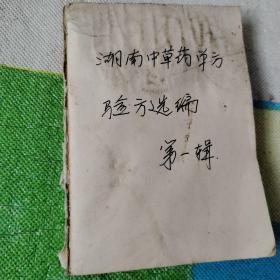 湖南中草药单方
验方选编
第一辑